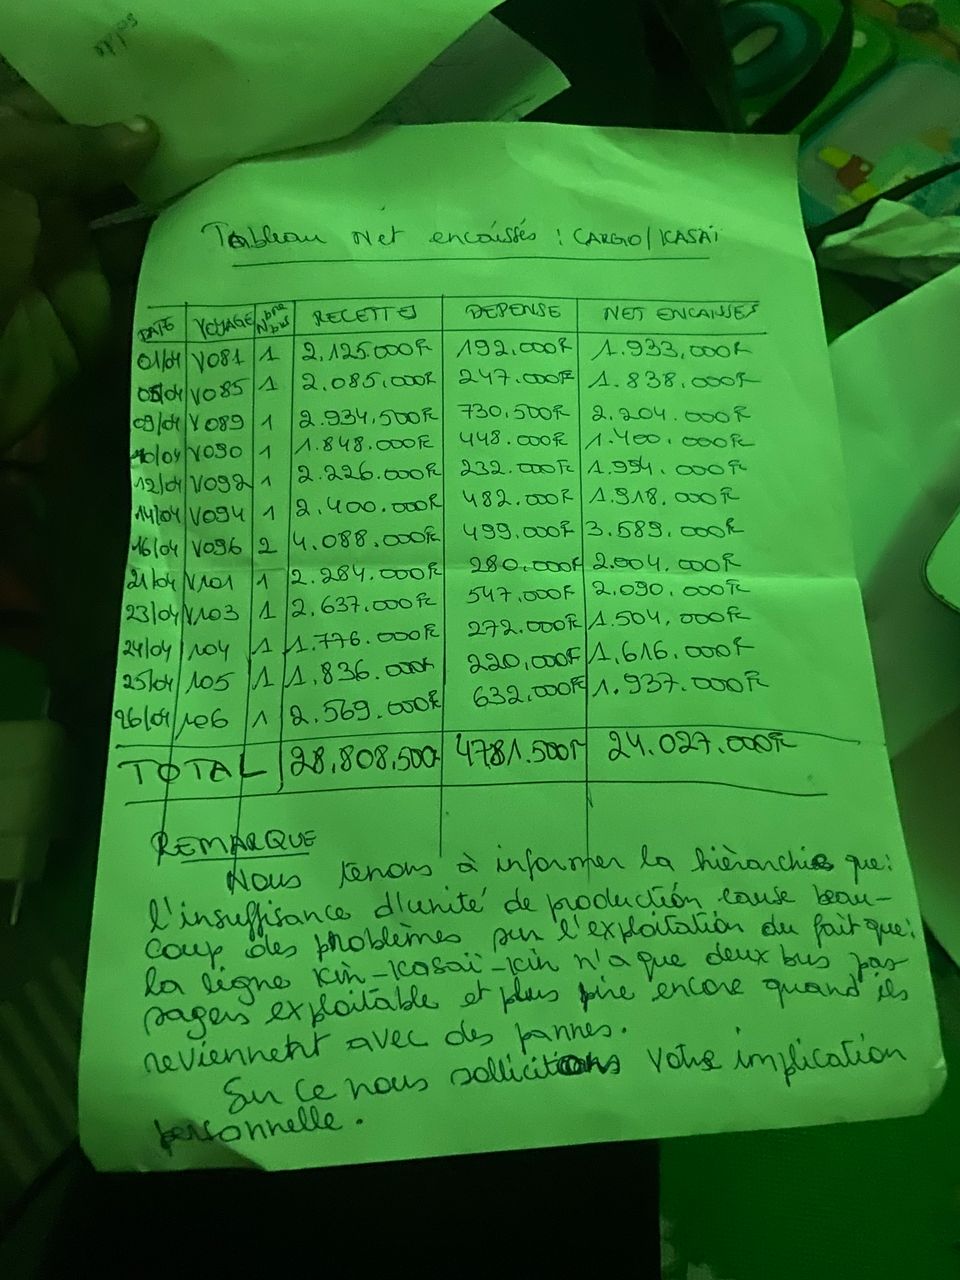 Tableau Net encaissés : CARGO/KASAÏ
DATE VOYAGE Nbre bus RECETTES DEPENSE NET ENCAISSES
01/04 V081 1 2.125.000Fc 192.000Fc 1.933.000Fc
05/04 V085 1 2.085.000Fc 247.000Fc 1.838.000Fc
09/04 V089 1 2.934.500Fc 730.500Fc 2.204.000Fc
10/04 V090 1 1.848.000Fc 448.000Fc 1.400.000Fc
12/04 V092 1 2.226.000Fc 232.000Fc 1.994.000Fc
14/04 V094 1 2.400.000Fc 482.000Fc 1.918.000Fc
16/04 V096 2 4.088.000Fc 499.000Fc 3.589.000Fc
21/04 V101 1 2.284.000Fc 280.000Fc 2.004.000Fc
23/04 V103 1 2.637.000Fc 547.000Fc 2.090.000Fc
24/04 104 1 1.776.000Fc 272.000Fc 1.504.000Fc
25/04 105 1 1.836.000Fc 220.000Fc 1.616.000Fc
26/04 106 1 2.569.000Fc 632.000Fc 1.937.000Fc
TOTAL 28.808.500F 4781.500F 24.027.000Fc
REMARQUE
Nous tenons à informer la hiérarchie que :
l'insuffisance d'unité de production cause beau-
coup des problèmes sur l'exploitation du fait que :
la ligne Kin-Kasaï-Kin n'a que deux bus pas
sagers exploitable et plus pire encore quand ils
reviennent avec des pannes.
Sur ce nous sollicitons votre implication
personnelle.